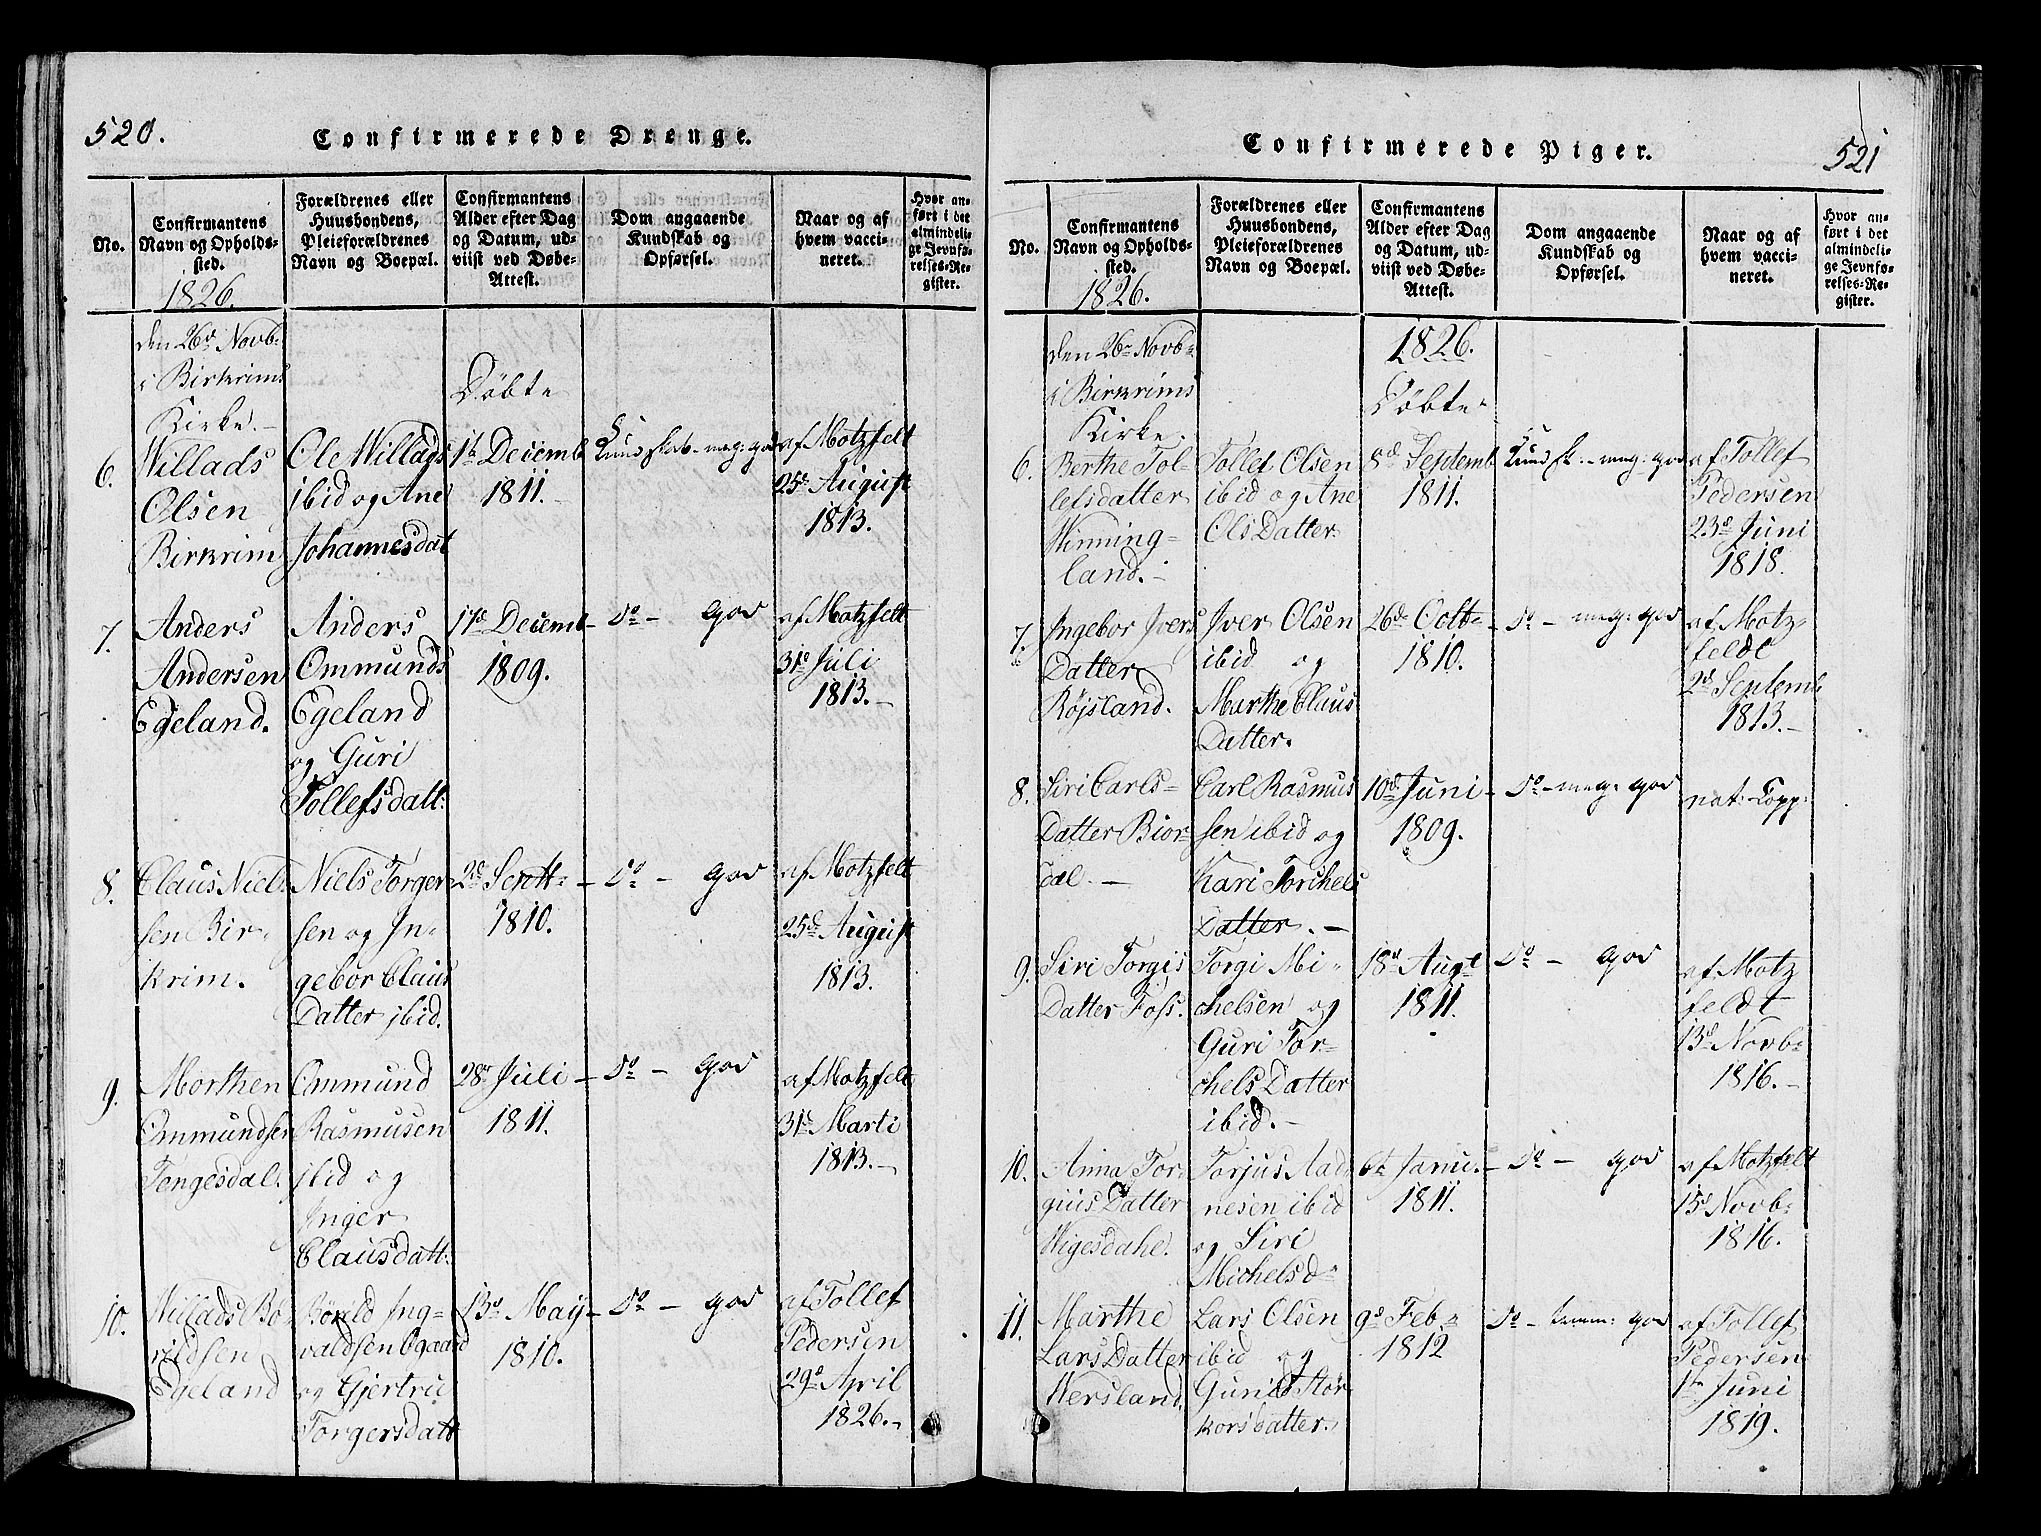 520.
Confirmerede Drenge.
No.
Confirmantens
Navn og Opholds-
sted.
1826.
Forældrenes eller
Huusbondens,
Pleieforældrenes
Navn og Boepæl.
Confirmantens
Alder efter Dag
og Datum, ud-
viist ved Døbe-
Attest.
Dom angaaende
Kundskab og
Opførsel.
Naar og af
hvem vacci-
neret.
Hvor an-
ført i det
almindeli-
ge Jevnfø-
relses-Re-
gister.
den 26de Novb-
i Birkrims
Kirke.-
Døbte
6.
Willads
Olsen
Birkrim
Ole Willads
ibid og Ane
Johannesdat
1te Decemb
1811.-
Kundskab - meg: god
af Motzfelt
25de August
1813.
7.
Anders
Andersen
Egeland.
Anders
Ommunds
Egeland
og Guri
Tollefsdatt:
17de Decemb-
1809.
do - god
af Motzfelt
31de Juli
1813.-
8.
Claus Niel-
sen Bir-
krim.
Niels Torger
sen og In-
gebor Claus
Datter ibid.
2de Septt-
1810.
do - god
af Motzfelt
25de August
1813.
9.
Morthen
Ommundsen
Tengesdal.
Ommund
Rasmusen
ibid og
Inger
Clausdatt:
28de Juli -
1811.
do - god
af Motzfelt
31de Marti
1813.-
10.
Willads Bo-
rildsen
Egeland
Borild Ing-
valdsen Egaard
og Gjertru
Torgersdatt
13de May -
1810.
do - god
af Tollef
Pedersen
29de April
1826.-
521
Confirmerede Piger.
No.
Confirmantens
Navn og Opholds-
sted.
1826.
Forældrenes eller
Huusbondens,
Pleieforældrenes
Navn og Boepæl.
Confirmantens
Alder efter Dag
og Datum, ud-
viist ved Døbe-
Attest.
Dom angaaende
Kundskab og
Opførsel.
Naar og af
hvem vacci-
neret.
Hvor an-
ført i det
almindeli-
ge Jevnfø-
relses-Re-
gister.
den 26de Novb-
i Birkrims
Kirke.
1826.
Døbte-
6.
Berthe Tol-
lefsdatter
Winning-
land.-
Tollef Olsen
ibid og Ane
Ols Datter
8de Septemb
1811.
Kundsk.- meg: god
af Tollef
Pedersen
23de Juni
1818.
7.
Ingebor Ivers
Datter
Røjsland.
Iver Olsen
ibid og
Marthe Claus
Datter.
26de Octt-
1810.
do - meg: god
af Motz-
feldt
2de Septemb
1813.-
8.
Siri Carls-
Datter Bior-
dal.-
Carl Rasmus
sen ibid og
Kari Torchels
Datter.-
10de Juni -
1809.
do - meg: god
nat: Copp:
9.
Siri Torgis
Datter Foss.
Torgi Mi-
chelsen og
Guri Tor-
chels Datter
ibid.-
18de Augt
1811.
do - god
af Motz
feldt
13de Novb-
1816.-
10.
Anna Tor-
guis Datter
Wigesdahl.
Torjus Aad-
nesen ibid
og Siri
Michelsd-
6te Janu:-
1811.
do - god
af Motzfelt
15de Novb-
1816.
11.
Marthe
Lars Datter
Wersland.
Lars Olsen
ibid og
Gunild Stor
kors Datter.
9de Feb-
1812
do - temm: god
af Tollef
Pedersen
1te Juni
1819.